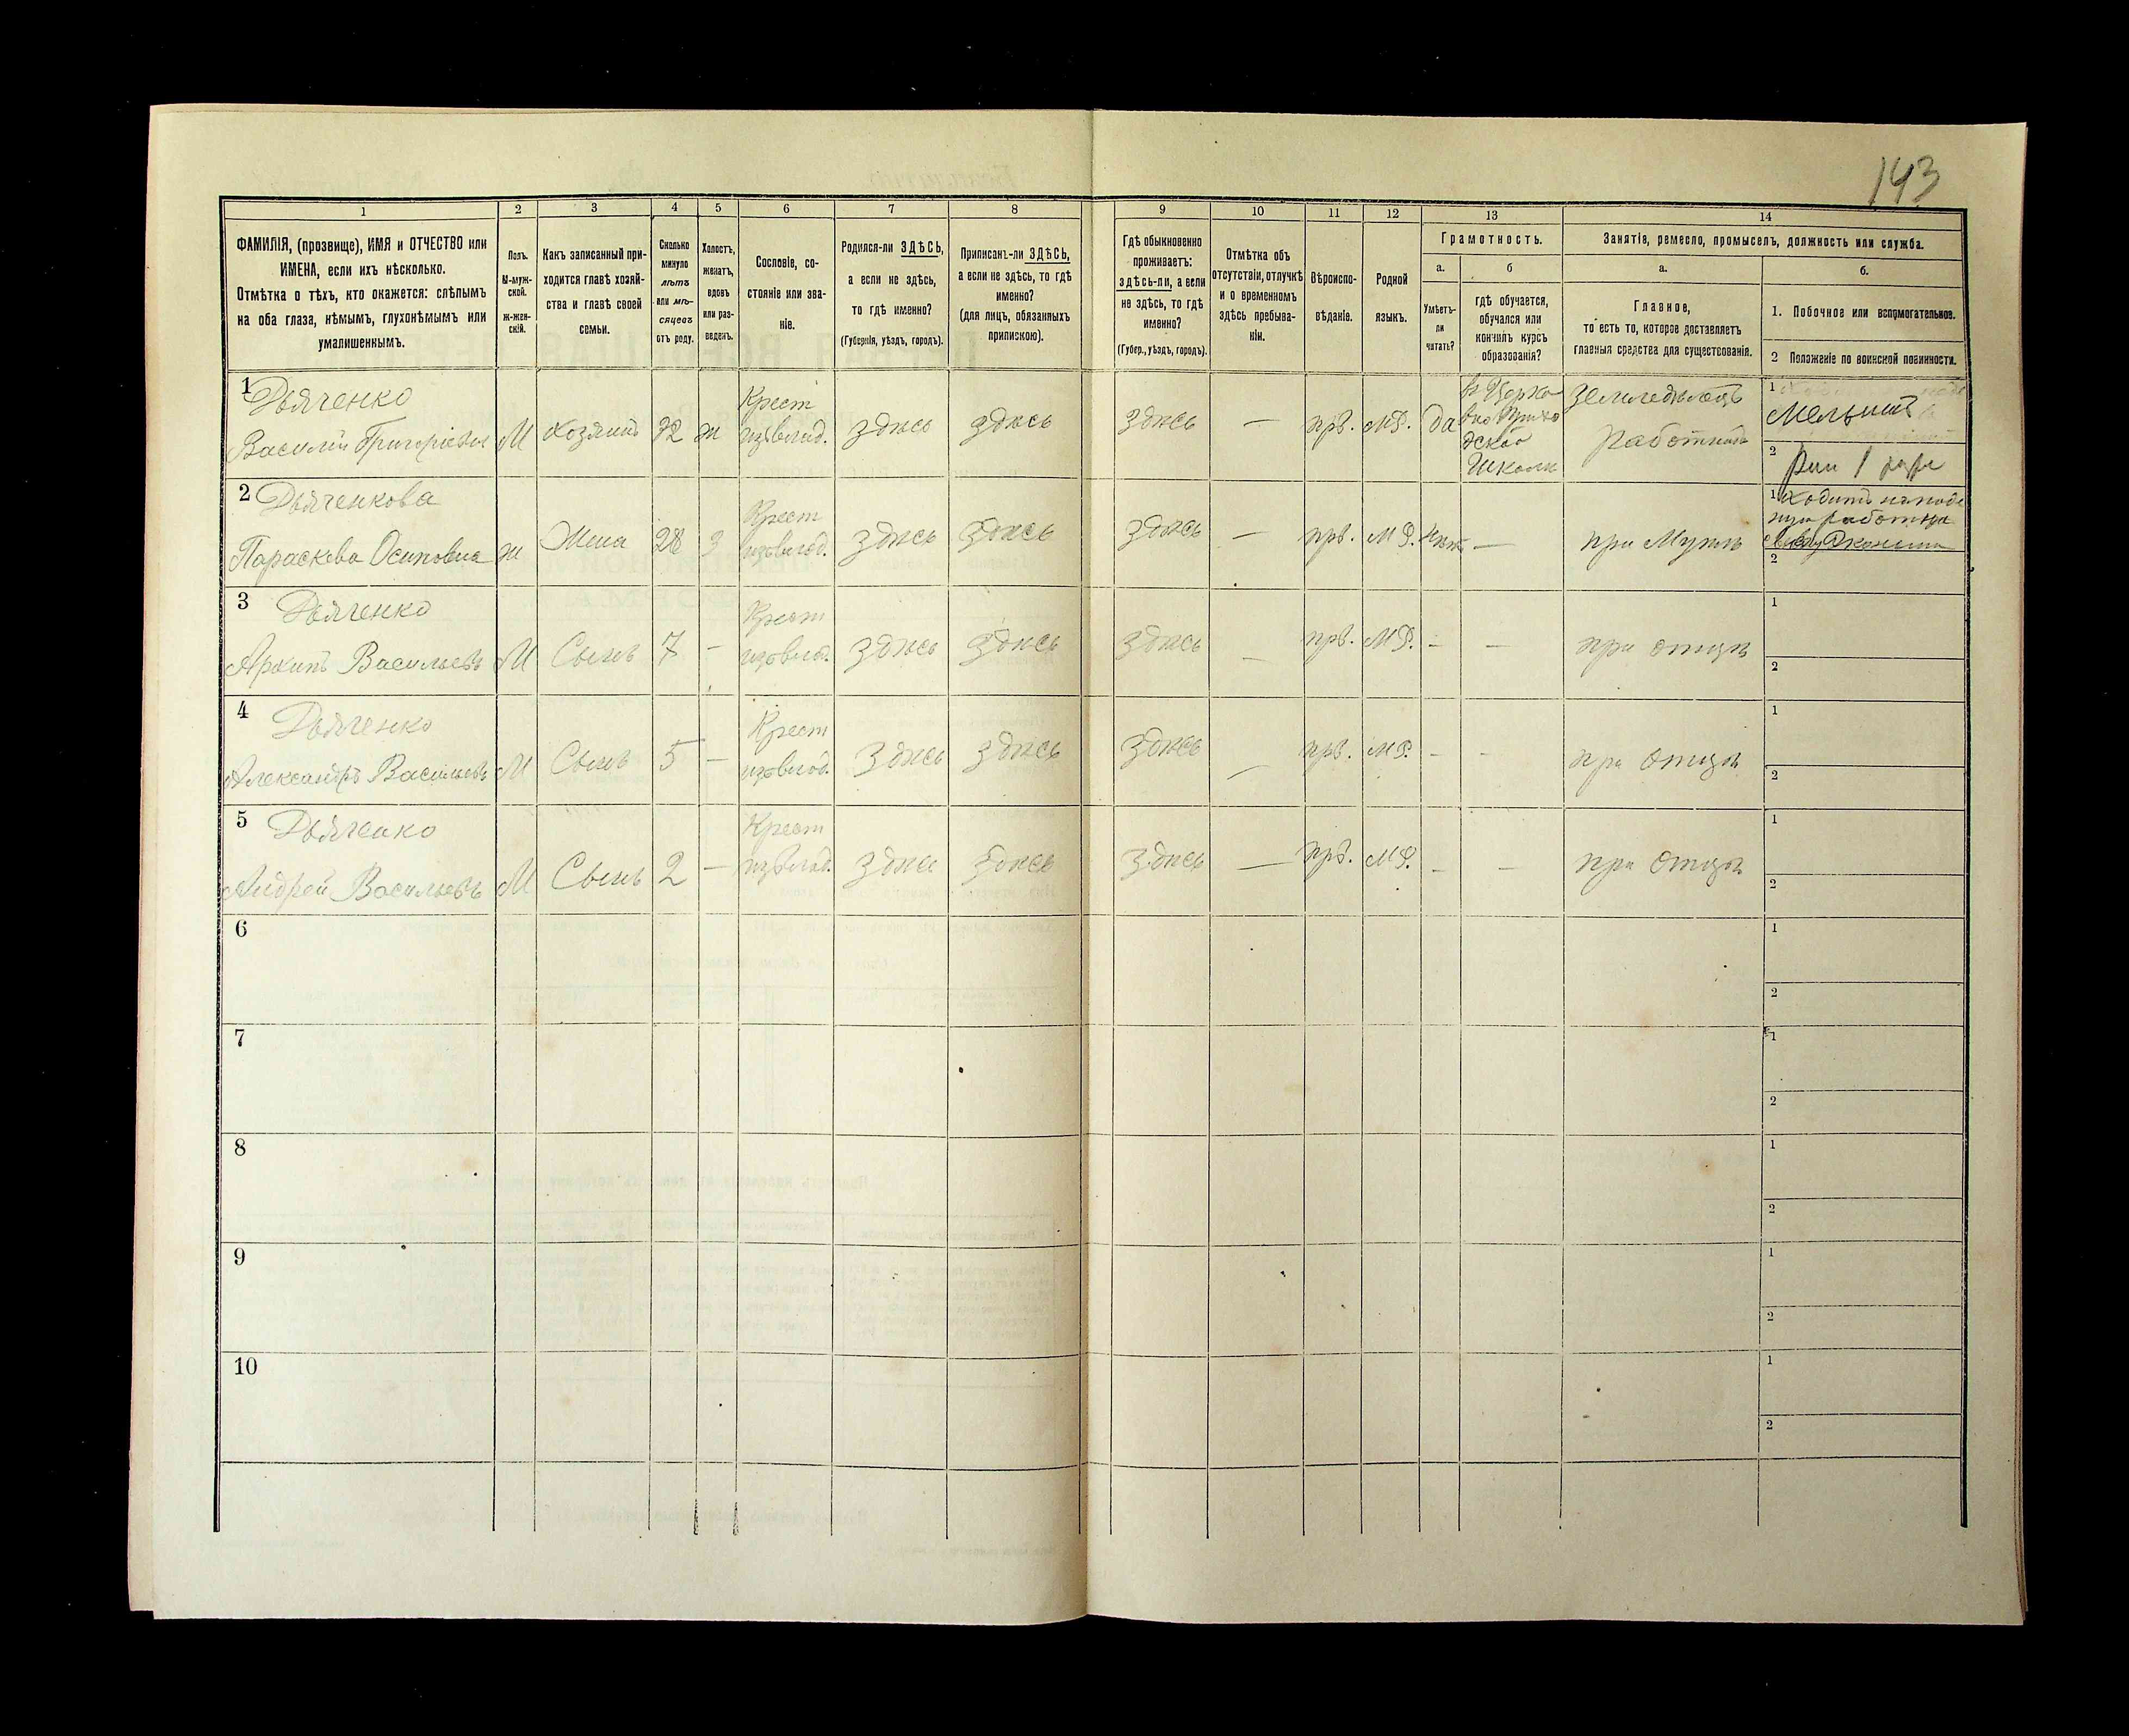 143
1 2 3 4 5 6 7 8 9 10 11 12 13 14
ФАМИЛІЯ, (прозвище), ИМЯ и ОТЧЕСТВО или
ИМЕНА, если ихъ нѣсколько.
Отмѣтка о тѣхъ, кто окажется: слѣпымъ
на оба глаза, нѣмымъ, глухонѣмымъ или
умалишеннымъ.
Полъ.
М-муж-
ской.
Ж-жен-
скій.
Какъ записанный при-
ходится главѣ хозяй-
ства и главѣ своей
семьи.
Сколько
минуло
лѣтъ
или мѣ-
сяцевъ
отъ роду.
Холостъ,
женатъ,
вдовъ
или раз-
веденъ.
Сословіе, со-
стояніе или зва-
ніе.
Родился-ли ЗДѢСЬ,
а если не здѣсь,
то гдѣ именно?
(Губернія, уѣздъ, городъ).
Приписанъ-ли ЗДѢСЬ,
а если не здѣсь, то гдѣ
именно?
(для лицъ, обязанныхъ
припискою).
Гдѣ обыкновенно
проживаетъ:
здѣсь-ли, а если
не здѣсь, то гдѣ
именно?
(Губер., уѣздъ, городъ).
Отмѣтка объ
отсутствіи, отлучкѣ
и о временномъ
здѣсь пребыва-
ніи.
Вѣроиспо-
вѣданіе.
Родной
языкъ.
Грамотность.
а.
Умѣетъ-
ли
читать?
б
гдѣ обучается,
обучался или
кончилъ курсъ
образованія?
Занятіе, ремесло, промыселъ, должность или служба.
а.
Главное,
то есть то, которое доставляетъ
главныя средства для существованія.
б.
1. Побочное или вспомогательное.
2 Положеніе по воинской повинности.
1 Дьяченко
Василій Григорьевъ М хозяинъ 32 ж Крест
изъ влад. здѣсь здѣсь здѣсь — прв. МР. да
в Церко
вно Прихо
дской
Школи
Земледѣлецъ
Работникъ
1
Мельникъ
2
2 Дьяченкова
Параскева Осиповна ж Жена 28 З Крест
изъ влад. здѣсь здѣсь здѣсь — прв. МР. нѣт — при Мужѣ
1 Ходитъ на поде
нную работу
2
3 Дьяченко
Архипъ Васильевъ М Сынъ 7 — Крест
изъ влад. здѣсь здѣсь здѣсь — прв. МР. — — при отцѣ
1
2
4 Дьяченко
Александръ Васильевъ М Сынъ 5 — Крест
изъ влад. здѣсь здѣсь здѣсь — прв. МР. — — при отцѣ
1
2
5 Дьяченко
Андрей Васильевъ М Сынъ 2 — Крест
изъ влад. здѣсь здѣсь здѣсь — прв. МР. — — при отцѣ
1
2
6 1
2
7 1
2
8 1
2
9 1
2
10 1
2